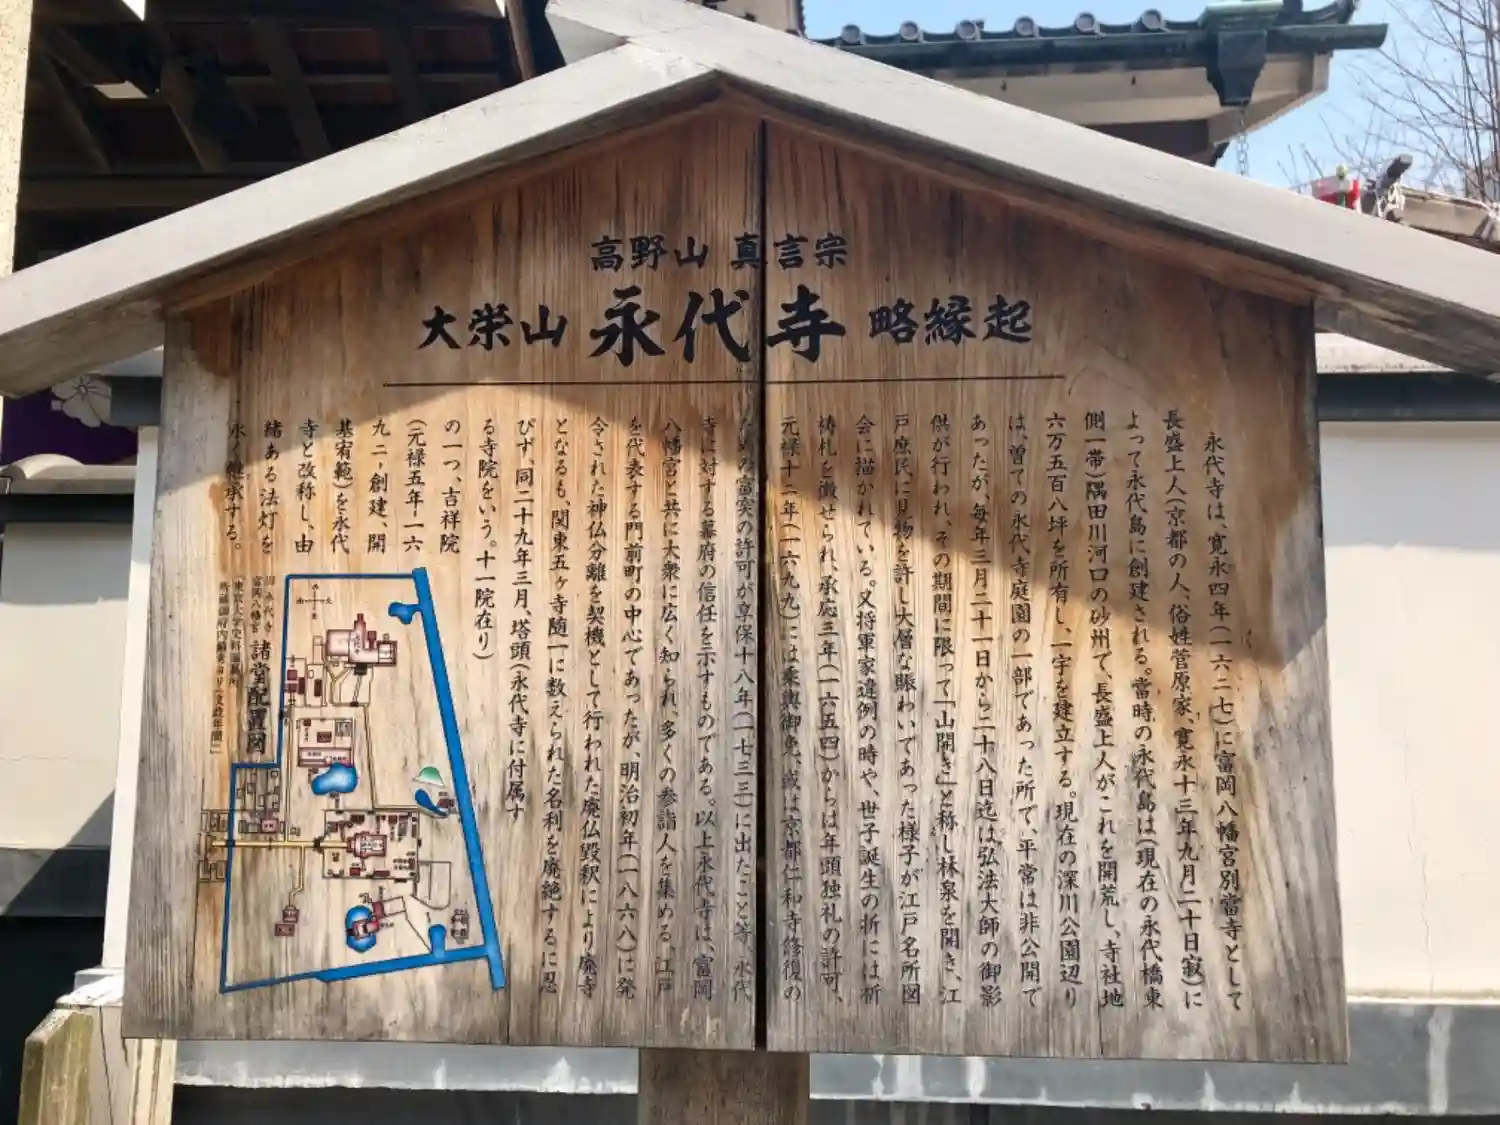 高野山 真言宗
大栄山 永代寺 略縁起
永代寺は、寛永四年(一六二七)に富岡八幡宮別當寺として
長盛上人(京都の人、俗姓菅原家、寛永十三年九月二十日寂)に
よって永代島に創建される。當時の永代島は(現在の永代橋東
側一帯)隅田川河口の砂州で、長盛上人がこれを開荒し、寺社地
六万五百八坪を所有し、一宇を建立する。現在の深川公園辺り
は、曽ての永代寺庭園の一部であった所で、平常は非公開で
あったが、毎年三月二十一日から二十八日迄は弘法大師の御影
供が行われ、その期間に限って「山開き」と称し林泉を開き、江
戸庶民に見物を許し大層な賑わいであった様子が江戸名所図
会に描かれている。又将軍家違例の時や、世子誕生の折には祈
祷札を徴せられ、承応三年(一六五四)からは年頭独礼の許可、
元禄十二年(一六九九)には乗輿御免、或は京都仁和寺修復の
ための富突の許可が享保十八年(一七三三)に出たこと等、永代
寺に対する幕府の信任を示すものである。以上永代寺は、富岡
八幡宮と共に大衆に広く知られ、多くの参詣人を集める。江戸
を代表する門前町の中心であったが、明治初年(一八六八)に発
令された神仏分離を契機として行われた廃仏毀釈により廃寺
となるも、関東五ヶ寺随一に数えられた名刹を廃絶するに忍
びず、同二十九年三月、塔頭(永代寺に付属す
る寺院をいう。十一院在り)
の一つ、吉祥院
(元禄五年-一六
九二,創建、開
基宥範)を永代
寺と改称し、由
緒ある法灯を
永く継承する。
旧永代寺
富岡八幡宮 諸堂配置図